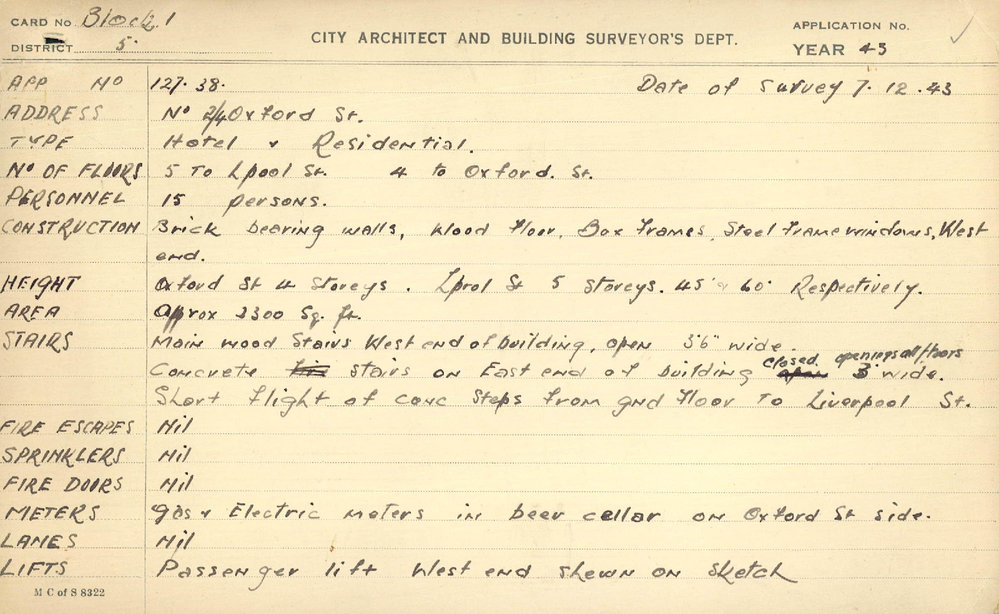 CARD No Block 1
DISTRICT 5
CITY ARCHITECT AND BUILDING SURVEYOR'S DEPT.
APPLICATION No.
YEAR 43
APP No 127.38. Date of Survey 7.12.43
ADDRESS No 2/4 Oxford St.
TYPE Hotel & Residential.
No OF FLOORS 5 To Lpool St. 4 to Oxford. St.
PERSONNEL 15 persons.
CONSTRUCTION Brick bearing walls, Wood floor, Box frames, Steel frame windows, West
end.
HEIGHT Oxford St 4 Storeys. Lpool St 5 storeys. 45' & 60' Respectively.
AREA Approx 3300 Sq. ft.
STAIRS Main wood Stairs West end of building, open 3'6" wide.
Concrete stairs on East end of building closed openings all floors 3' wide.
Short flight of conc Steps from gnd floor to Liverpool St.
FIRE ESCAPES Nil
SPRINKLERS Nil
FIRE DOORS Nil
METERS Gas & Electric meters in beer cellar on Oxford St side.
LANES Nil
LIFTS Passenger lift West end shewn on sketch
M C of S 8322